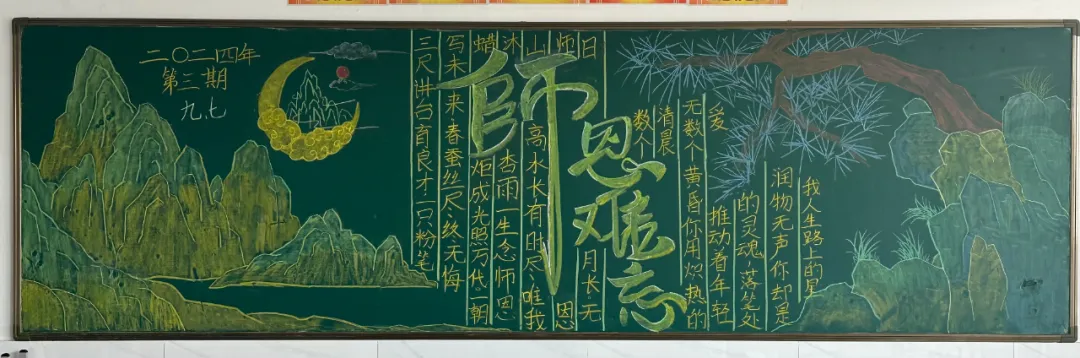 二〇二四年
第三期
九.七
師恩难忘
三尺讲台育良才一只粉笔
写未来春蚕丝尽终无悔
蜡炬成光照万代。一朝
沐杏雨一生念师恩
山高水长有时尽唯我
师恩
日月长。无
数个
清晨
无数个黄昏你用炽热的
爱推动着年轻
的灵魂落笔处
润物无声你却是
我人生路上的星